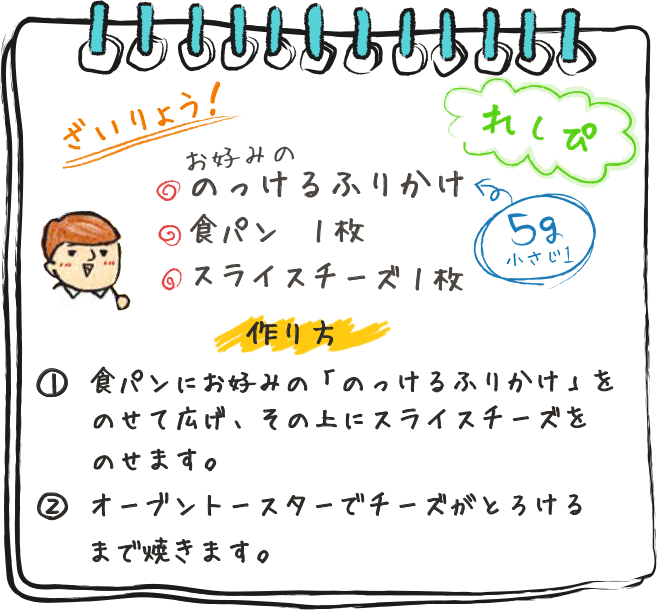 ざいりょう!
れしぴ
お好みの
のっけるふりかけ
5g
小さじ1
食パン 1枚
スライスチーズ1枚
作り方
① 食パンにお好みの「のっけるふりかけ」を
のせて広げ、その上にスライスチーズを
のせます。
② オーブントースターでチーズがとろける
まで焼きます。